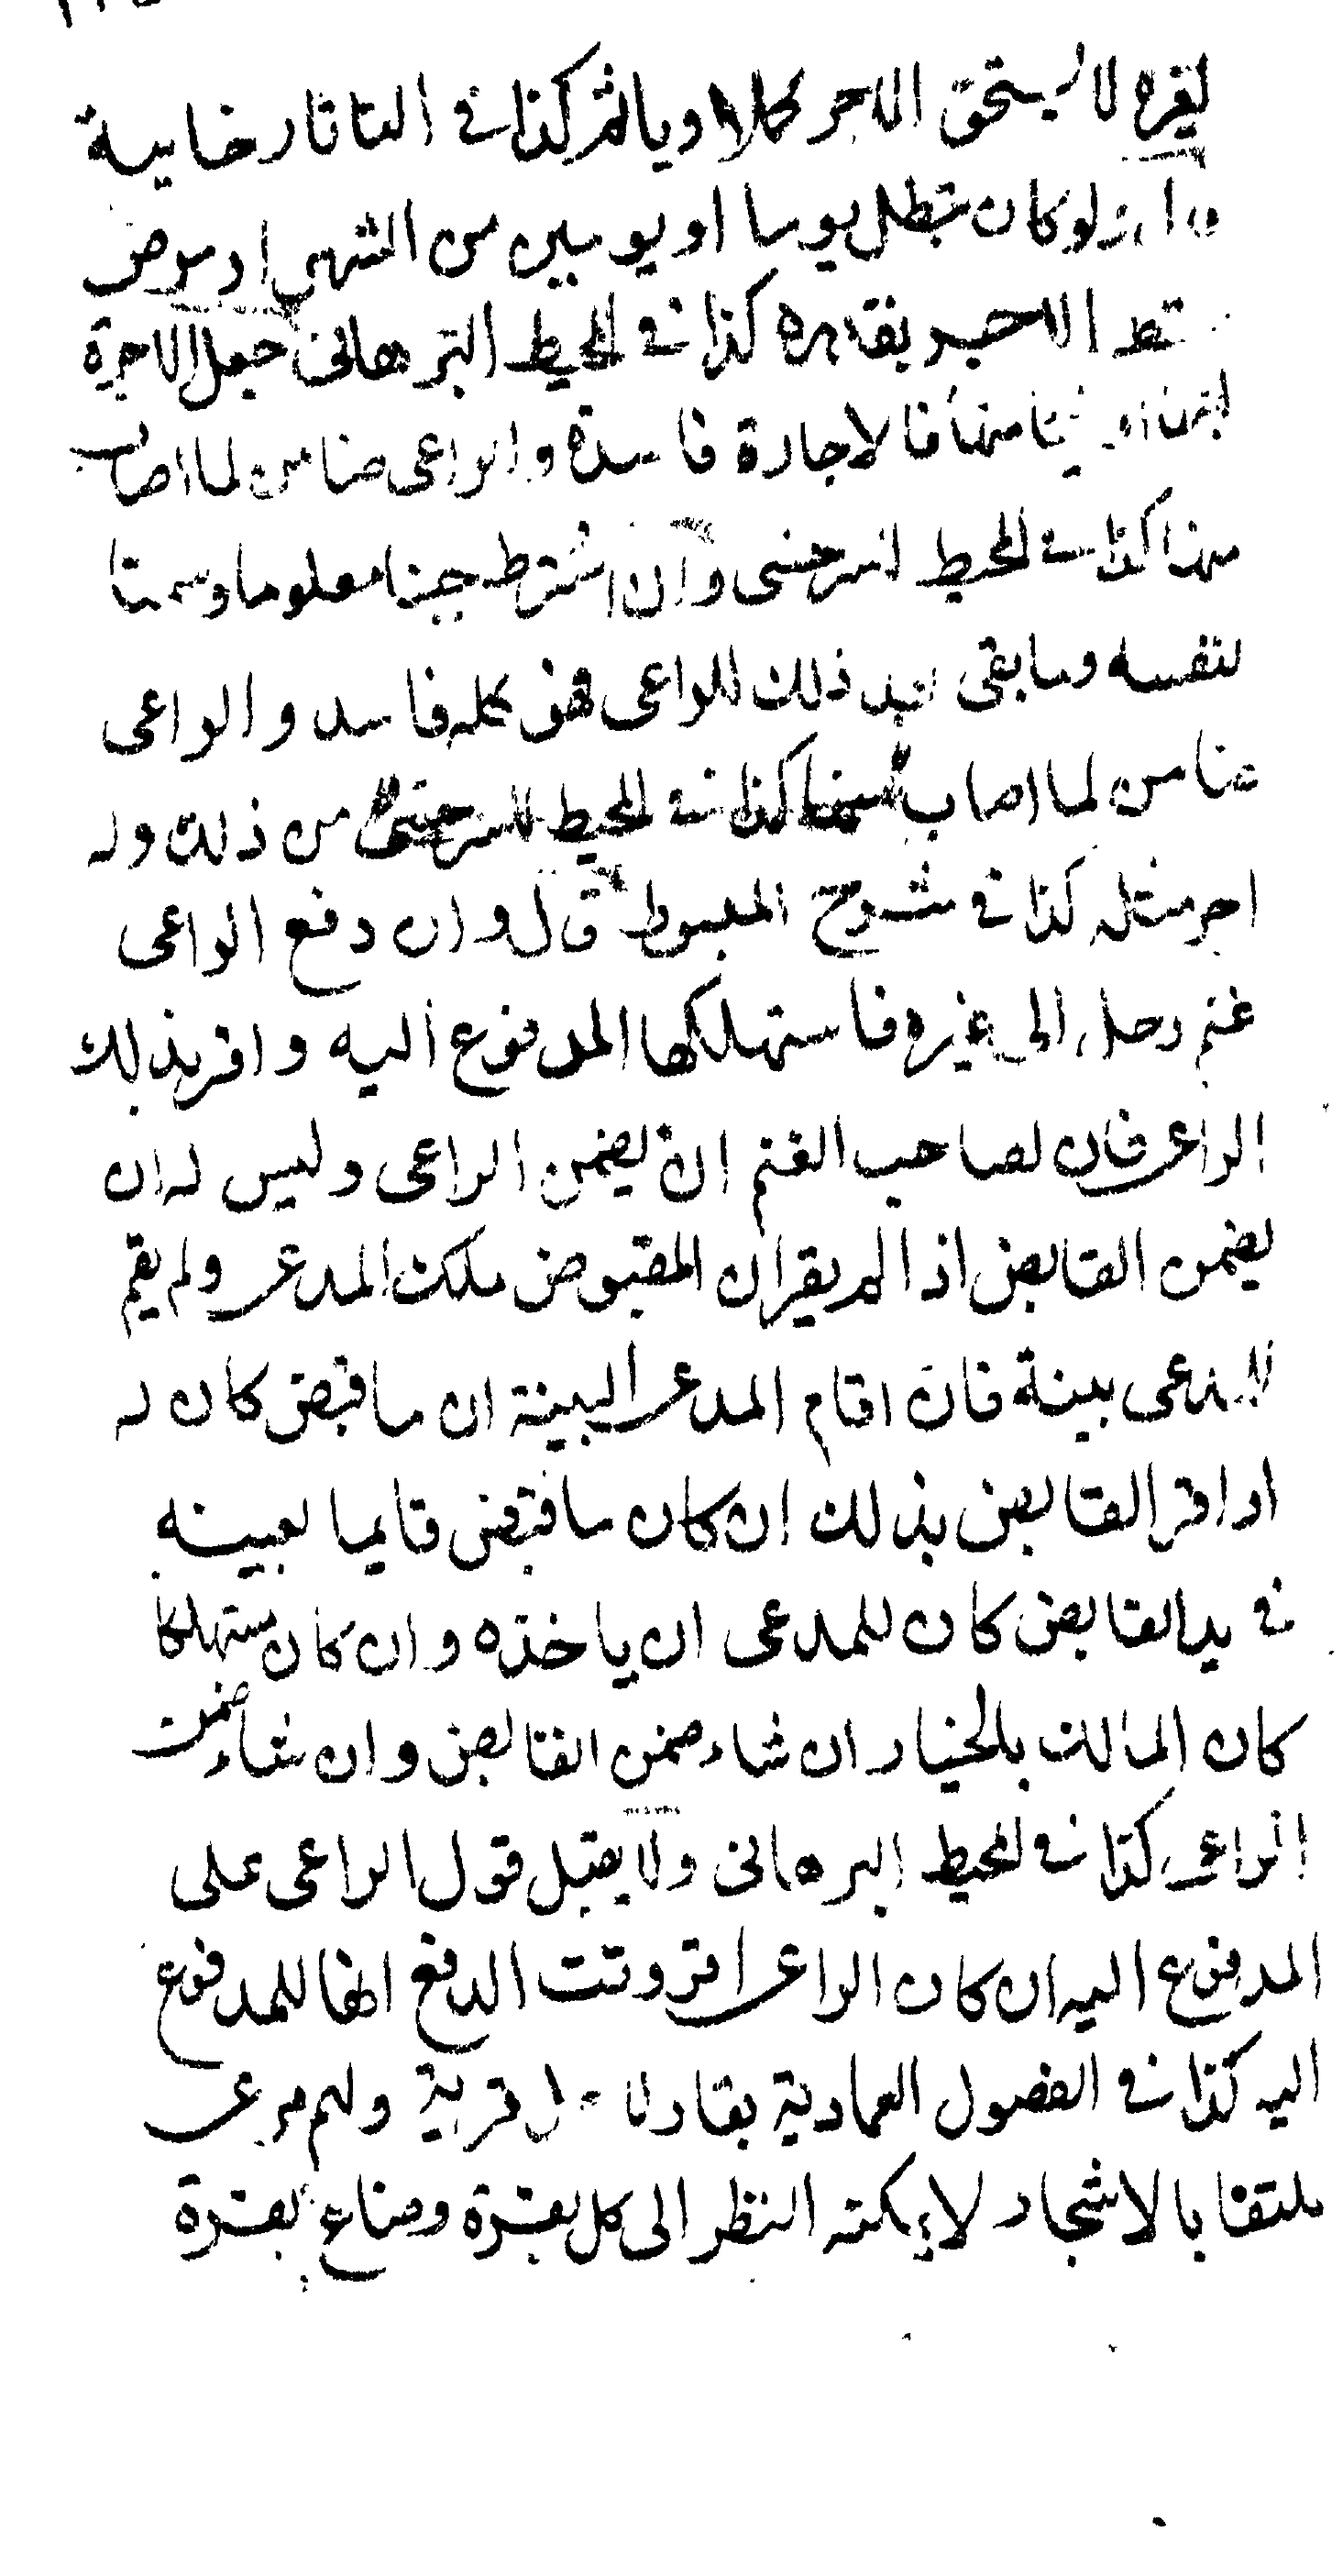 لغيره لا يستحق الاجر كملا ويأثم كذا في التاتارخانية
ولو كان تبطل يوما او يومين من الشهر او مرض
الاجر بقدره كذا في المحيط البرهاني جعل الاجرة
منها فالاجارة فاسدة والراعي ضامن لما اصاب
منها كذا في المحيط السرخسي وان اشترط جبنا معلوما وسمنا
لنفسه وما بقي بعد ذلك للراعي فهو كله فاسد والراعي
ضامن لما اصاب منها كذا في المحيط السرخسي من ذلك وله
اجر مثله كذا في شرح المبسوط قال وان دفع الراعي
غنم رجل الى غيره فاستهلكها المدفوع اليه واقر بذلك
الراعي فان لصاحب الغنم ان يضمن الراعي وليس له ان
يضمن القابض اذا لم يقر ان المقبوض ملك المدعي ولم يقم
المدعي بينة فان اقام المدعي البينة ان ما قبض كان له
او اقر القابض بذلك ان كان ما قبض قايما بعينه
في يد القابض كان للمدعي ان ياخذه وان كان مستهلكا
كان المالك بالخيار ان شاء ضمن القابض وان شاء ضمن
الراعي كذا في المحيط البرهاني ولا يقبل قول الراعي على
المدفوع اليه ان كان الراعي اقر وقت الدفع انها للمدفوع
اليه كذا في الفصول العمادية بقار لا قرية ولهم مرعى
ملتفا بالاشجار لا يمكنه النظر الى كل بقرة وضاع بقرة